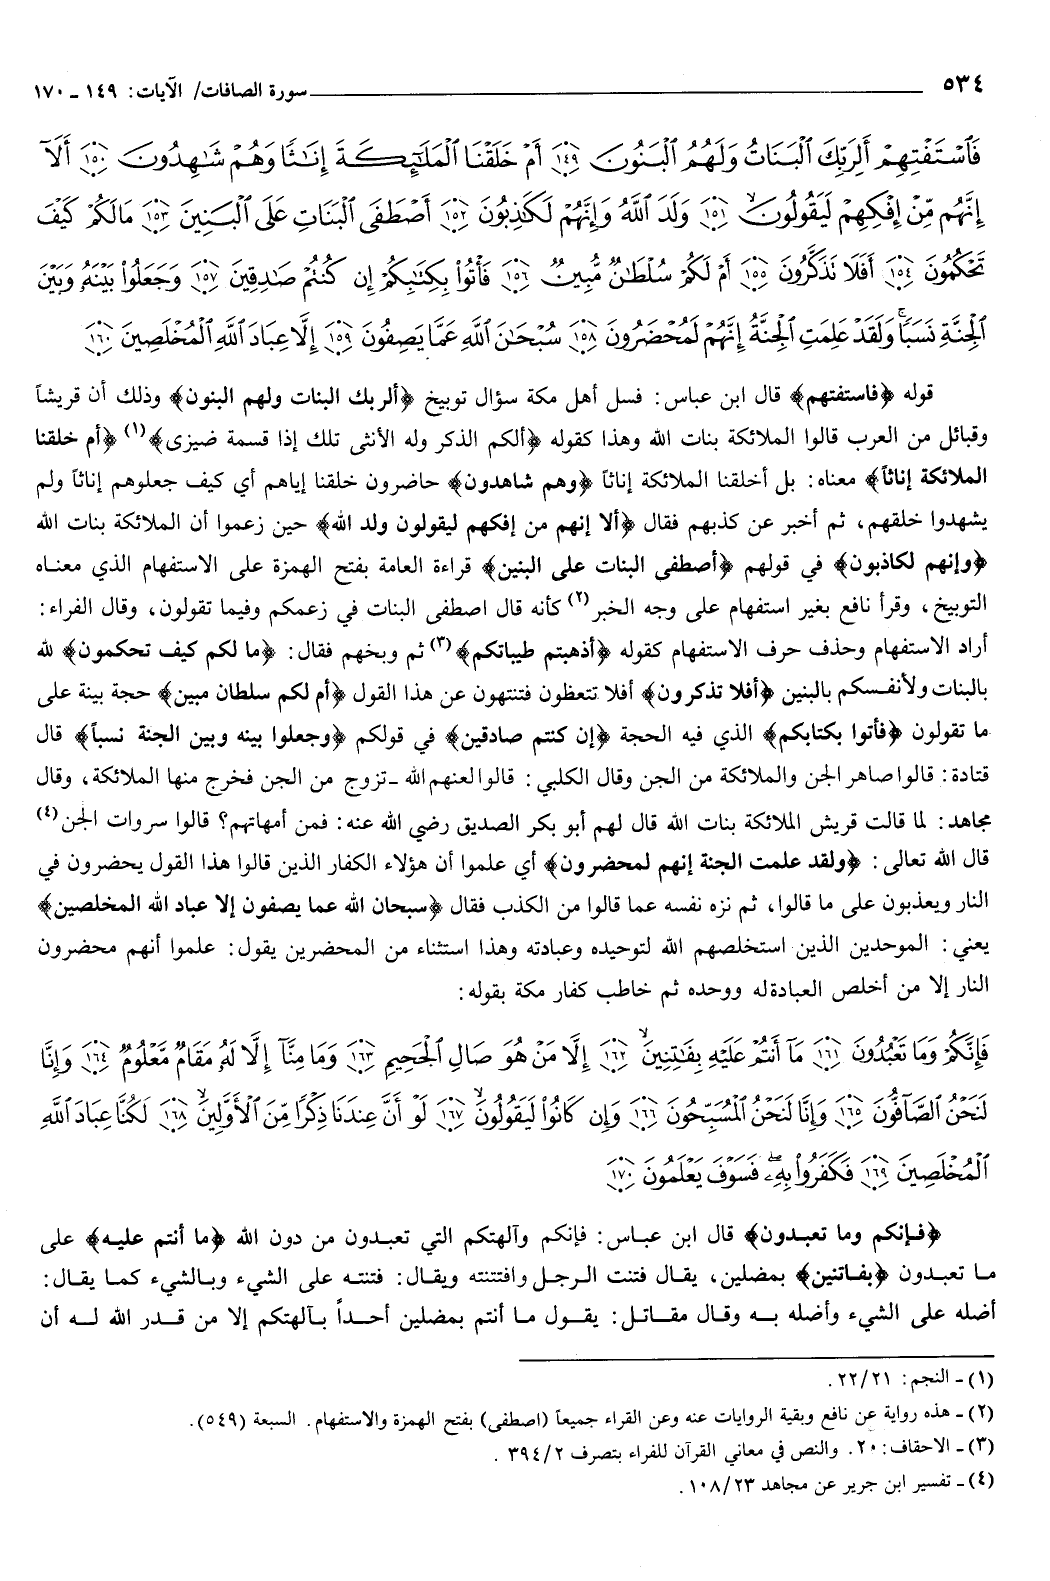 ٥٣٤ سورة الصافات/ الآيات: ١٤٩ ـ ١٧٠
فَٱسْتَفْتِهِمْ أَلِرَبِّكَ ٱلْبَنَاتُ وَلَهُمُ ٱلْبَنُونَ ١٤٩ أَمْ خَلَقْنَا ٱلْمَلَٰٓئِكَةَ إِنَٰثًا وَهُمْ شَٰهِدُونَ ١٥٠ أَلَآ
إِنَّهُم مِّنْ إِفْكِهِمْ لَيَقُولُونَ ١٥١ وَلَدَ ٱللَّهُ وَإِنَّهُمْ لَكَٰذِبُونَ ١٥٢ أَصْطَفَى ٱلْبَنَاتِ عَلَى ٱلْبَنِينَ ١٥٣ مَالَكُمْ كَيْفَ
تَحْكُمُونَ ١٥٤ أَفَلَا نَذَكَّرُونَ ١٥٥ أَمْ لَكُمْ سُلْطَٰنٌ مُّبِينٌ ١٥٦ فَأْتُوا۟ بِكِتَٰبِكُمْ إِن كُنتُمْ صَٰدِقِينَ ١٥٧ وَجَعَلُوا۟ بَيْنَهُۥ وَبَيْنَ
ٱلْجِنَّةِ نَسَبًا ۚ وَلَقَدْ عَلِمَتِ ٱلْجِنَّةُ إِنَّهُمْ لَمُحْضَرُونَ ١٥٨ سُبْحَٰنَ ٱللَّهِ عَمَّا يَصِفُونَ ١٥٩ إِلَّا عِبَادَ ٱللَّهِ ٱلْمُخْلَصِينَ ١٦٠
قوله ﴿فاستفتهم﴾ قال ابن عباس: فسل أهل مكة سؤال توبيخ ﴿ألربك البنات ولهم البنون﴾ وذلك أن قريشاً
وقبائل من العرب قالوا الملائكة بنات الله وهذا كقوله ﴿ألكم الذكر وله الأنثى تلك إذا قسمة ضيزى﴾(١) ﴿أم خلقنا
الملائكة إناثاً﴾ معناه: بل أخلقنا الملائكة إناثاً ﴿وهم شاهدون﴾ حاضرون خلقنا إياهم أي كيف جعلوهم إناثاً ولم
يشهدوا خلقهم، ثم أخبر عن كذبهم فقال ﴿ألا إنهم من إفكهم ليقولون ولد الله﴾ حين زعموا أن الملائكة بنات الله
﴿وإنهم لكاذبون﴾ في قولهم ﴿أصطفى البنات على البنين﴾ قراءة العامة بفتح الهمزة على الاستفهام الذي معناه
التوبيخ، وقرأ نافع بغير استفهام على وجه الخبر(٢) كأنه قال اصطفى البنات في زعمكم وفيما تقولون، وقال الفراء:
أراد الاستفهام وحذف حرف الاستفهام كقوله ﴿أذهبتم طيباتكم﴾(٣) ثم وبخهم فقال: ﴿ما لكم كيف تحكمون﴾ لله
بالبنات ولأنفسكم بالبنين ﴿أفلا تذكرون﴾ أفلا تتعظون فتنتهون عن هذا القول ﴿أم لكم سلطان مبين﴾ حجة بينة على
ما تقولون ﴿فأتوا بكتابكم﴾ الذي فيه الحجة ﴿إن كنتم صادقين﴾ في قولكم ﴿وجعلوا بينه وبين الجنة نسباً﴾ قال
قتادة: قالوا صاهر الجن والملائكة من الجن وقال الكلبي: قالوا لعنهم الله ـ تزوج من الجن فخرج منها الملائكة، وقال
مجاهد: لما قالت قريش الملائكة بنات الله قال لهم أبو بكر الصديق رضي الله عنه: فمن أمهاتهم؟ قالوا سروات الجن(٤)
قال الله تعالى: ﴿ولقد علمت الجنة إنهم لمحضرون﴾ أي علموا أن هؤلاء الكفار الذين قالوا هذا القول يحضرون في
النار ويعذبون على ما قالوا، ثم نزه نفسه عما قالوا من الكذب فقال ﴿سبحان الله عما يصفون إلا عباد الله المخلصين﴾
يعني: الموحدين الذين استخلصهم الله لتوحيده وعبادته وهذا استثناء من المحضرين يقول: علموا أنهم محضرون
النار إلا من أخلص العبادة له ووحده ثم خاطب كفار مكة بقوله:
فَإِنَّكُمْ وَمَا تَعْبُدُونَ ١٦١ مَآ أَنتُمْ عَلَيْهِ بِفَٰتِنِينَ ١٦٢ إِلَّا مَنْ هُوَ صَالِ ٱلْجَحِيمِ ١٦٣ وَمَا مِنَّآ إِلَّا لَهُۥ مَقَامٌ مَّعْلُومٌ ١٦٤ وَإِنَّا
لَنَحْنُ ٱلصَّآفُّونَ ١٦٥ وَإِنَّا لَنَحْنُ ٱلْمُسَبِّحُونَ ١٦٦ وَإِن كَانُوا۟ لَيَقُولُونَ ١٦٧ لَوْ أَنَّ عِندَنَا ذِكْرًا مِّنَ ٱلْأَوَّلِينَ ١٦٨ لَكُنَّا عِبَادَ ٱللَّهِ
ٱلْمُخْلَصِينَ ١٦٩ فَكَفَرُوا۟ بِهِۦ ۖ فَسَوْفَ يَعْلَمُونَ ١٧٠
﴿فإنكم وما تعبدون﴾ قال ابن عباس: فإنكم وآلهتكم التي تعبدون من دون الله ﴿ما أنتم عليه﴾ على
ما تعبدون ﴿بفاتنين﴾ بمضلين، يقال فتنت الرجل وافتتنته ويقال: فتنته على الشيء وبالشيء كما يقال:
أضله على الشيء وأضله به وقال مقاتل: يقول ما أنتم بمضلين أحداً بآلهتكم إلا من قدر الله له أن
(١) ـ النجم: ٢٢/٢١.
(٢) ـ هذه رواية عن نافع وبقية الروايات عنه وعن القراء جميعاً (اصطفى) بفتح الهمزة والاستفهام. السبعة (٥٤٩).
(٣) ـ الاحقاف: ٢٠. والنص في معاني القرآن للفراء بتصرف ٣٩٤/٢.
(٤) ـ تفسير ابن جرير عن مجاهد ١٠٨/٢٣.